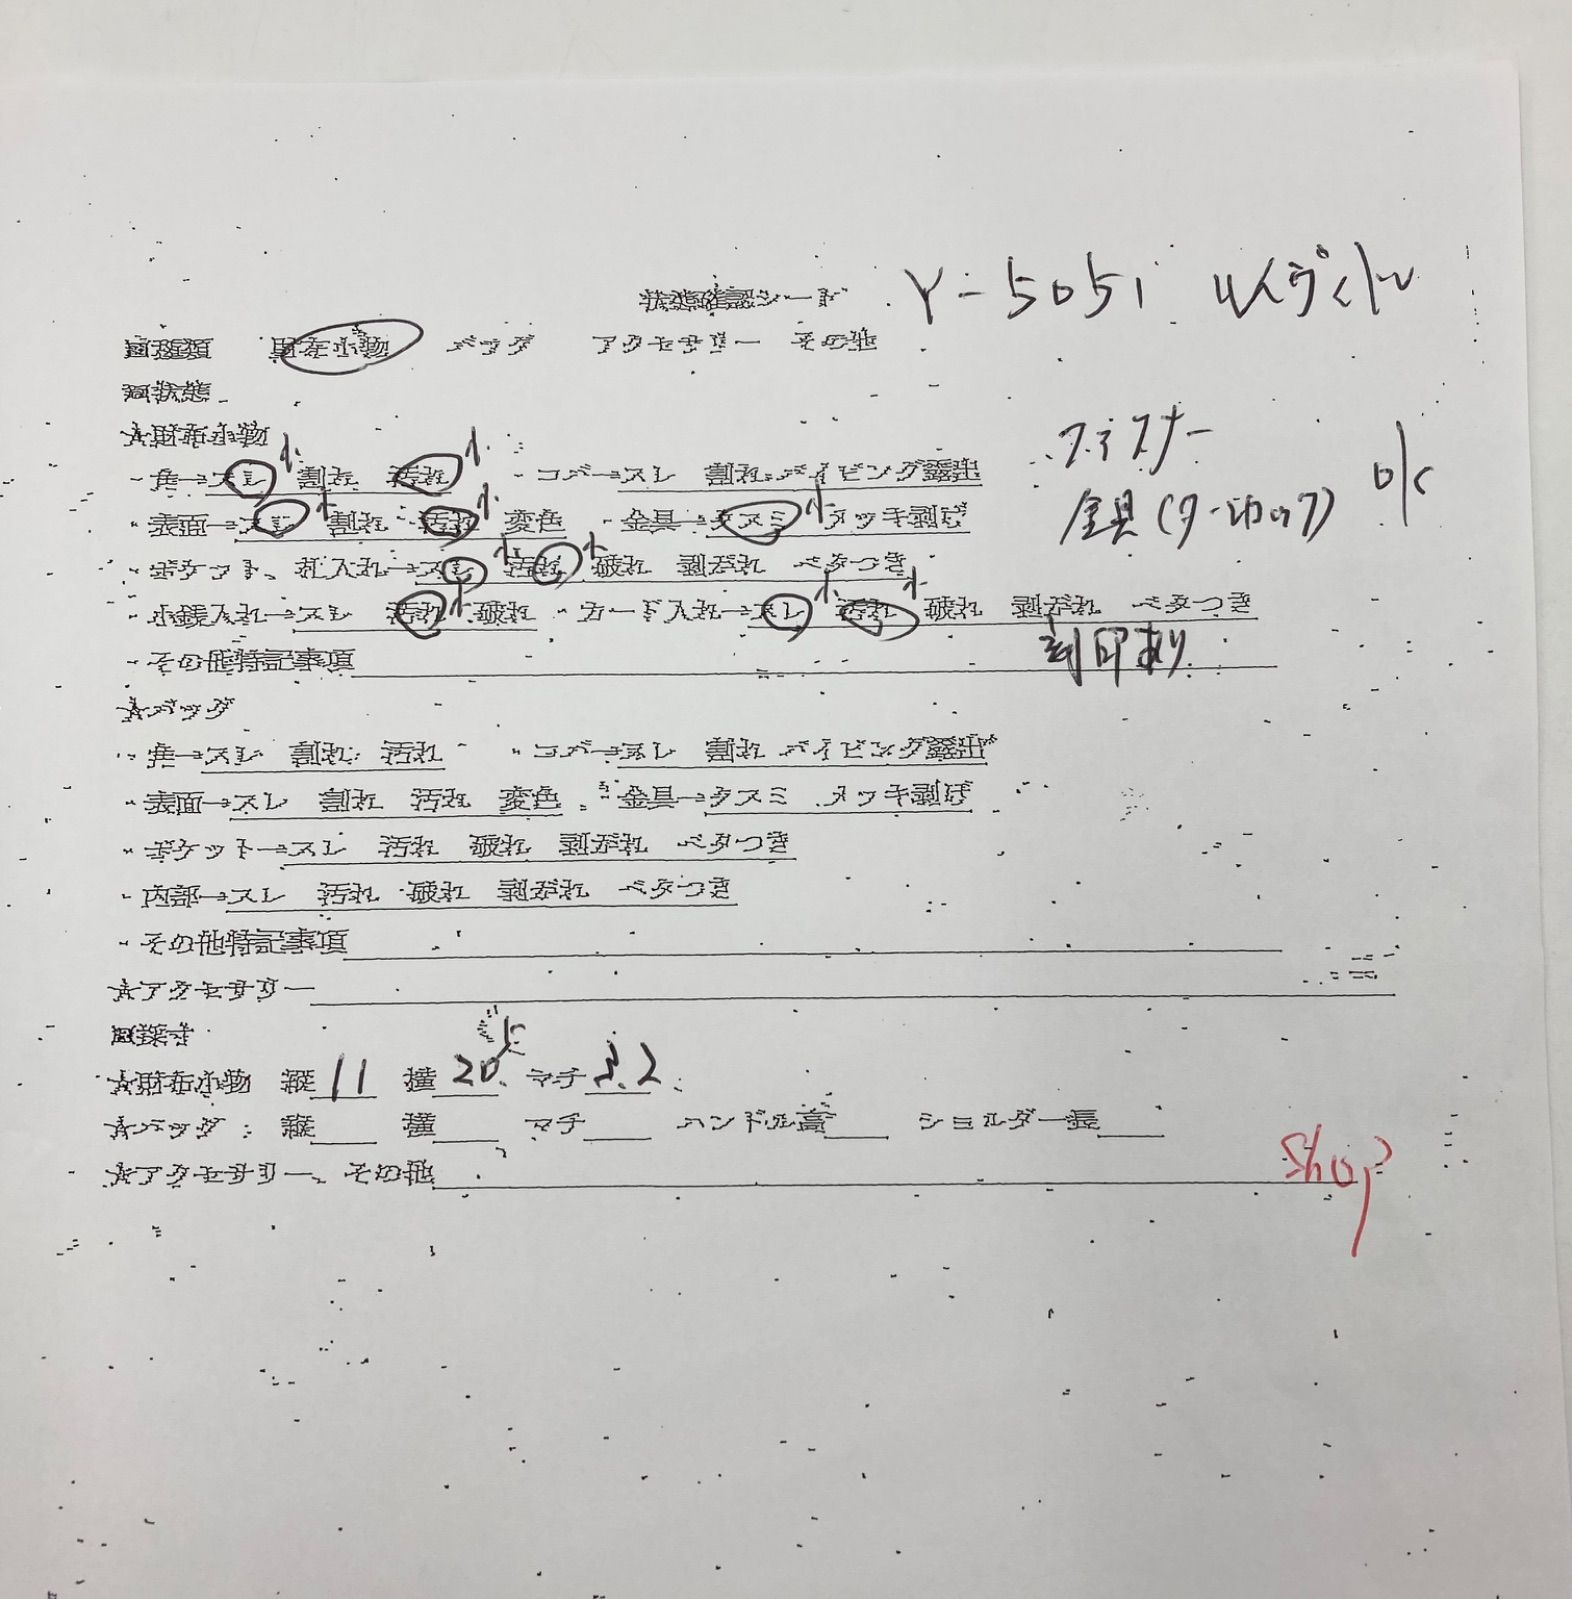 状態確認シート Y-5051
種類 財布小物 バッグ アクセサリー その他
状態
★財布小物 ファスナー
・角→スレ 小 割れ 汚れ 小 ・コバ→スレ 割れ パイピング露出 ok
・表面→スレ 小 割れ 汚れ 小 変色 ・金具→クスミ 小 メッキ剥げ 金具(ターンロック)
・ポケット、札入れ→スレ 小 汚れ 小 破れ 剥がれ ベタつき
・小銭入れ→スレ 汚れ 小 破れ ・カード入れ→スレ 小 汚れ 小 破れ 剥がれ ベタつき
・その他特記事項 刻印あり
★バッグ
・角→スレ 割れ 汚れ ・コバ→スレ 割れ パイピング露出
・表面→スレ 割れ 汚れ 変色 ・金具→クスミ メッキ剥げ
・ポケット→スレ 汚れ 破れ 剥がれ ベタつき
・内部→スレ 汚れ 破れ 剥がれ ベタつき
・その他特記事項
★アクセサリー
採寸
★財布小物 縦 11 横 20 マチ 3.2
★バッグ 縦 横 マチ ハンドル高 ショルダー長
★アクセサリー、その他 Shop